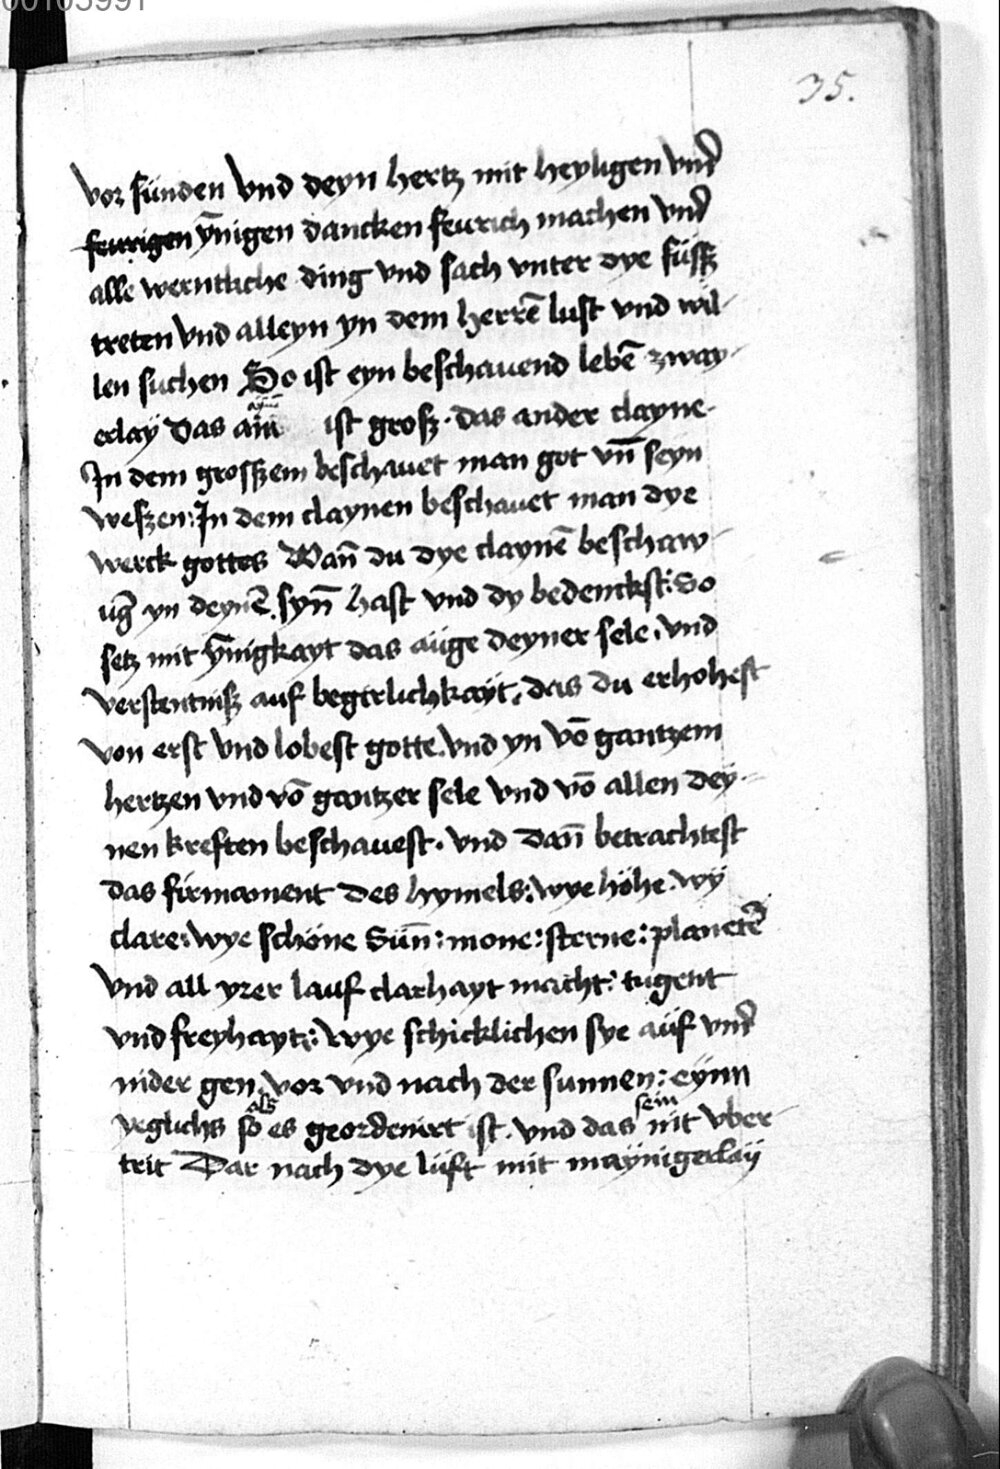 00103991
35.
vor sünden vnd deyn hertz mit heyligen vnd̄
feurigen ȳnigen dancken feurich machen vnd̄
alle werntliche ding vnd sach vnter dye füsß
treten vnd alleyn yn dem herrē lust vnd wil-
len suchen So ist eyn beschauend lebē zway-
erlaÿ Das ain ist grosß · das ander clayne·
In dem grosßem beschauet man got vn̄ seyn
weszen: In dem claynen beschauet man dye
werck gottes Wan̄ du dye claynē beschaw-
ūg yn deynē syn̄ hast vnd dy bedenckst: So
setz mit ȳnigkayt das auge deyner sele. vnd
verstentnisß auf begirlichkayt: das du erhohest
von erst vnd lobest gotte. vnd yn vō gantzem
hertzen vnd vō gantzer sele vnd vō allen deÿ-
nen kreften beschauest. vnd dan̄ betrachtest
das firmament des hymels: wye höhe: wÿ
clare: wye schöne Sun̄: mone: sterne: planetē
vnd all yrer lauf clarhayt macht: tugent
vnd freyhayt: wye schicklichen sye auf vnd̄
nider gen. vor vnd nach der sunnen: eynn
als sein
yeglichs so es geordenirt ist. vnd das nit vber-
trit Dar nach dye lüft mit maÿnigerlaÿ